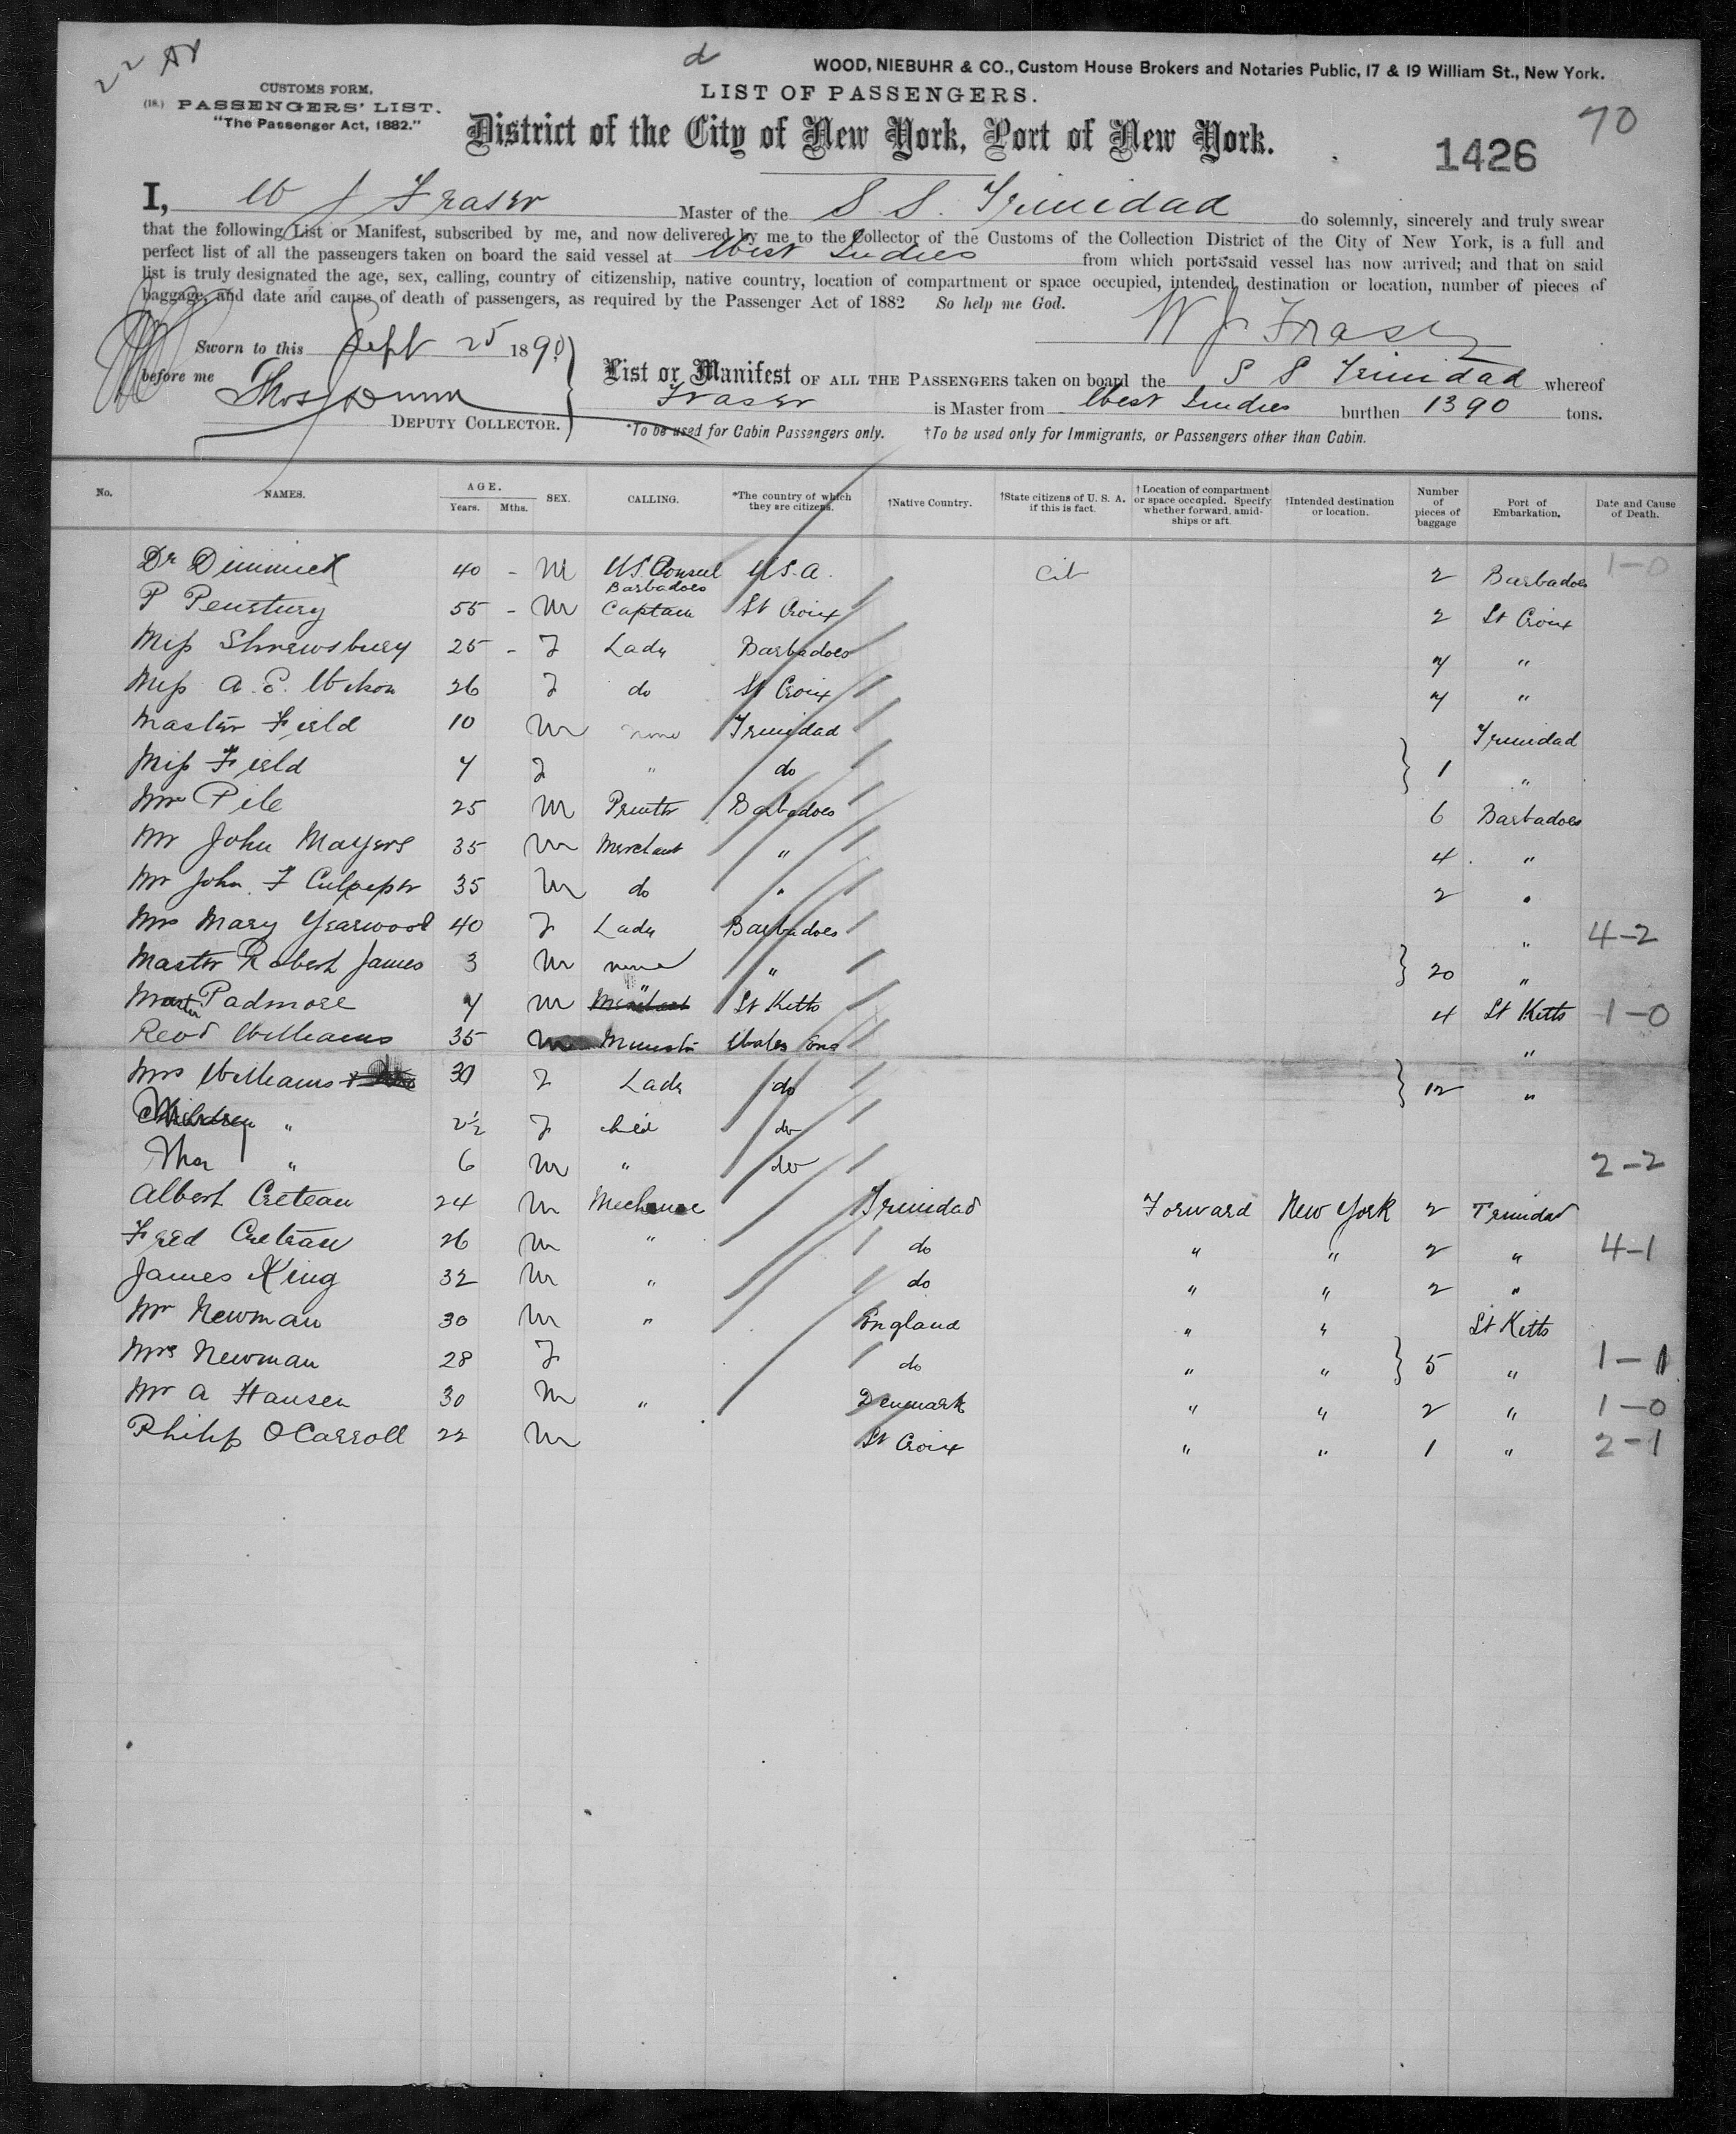 22
d
WOOD, NIEBUHR & CO., Custom House Brokers and Notaries Public, 17 & 19 William St., New York.
CUSTOMS FORM.
(18.) PASSENGERS' LIST.
"The Passenger Act, 1882."
LIST OF PASSENGERS.
70
District of the City of New York, Port of New York.
1426
I, W J Fraser Master of the S S. Trinidad do solemnly, sincerely and truly swear
that the following List or Manifest, subscribed by me, and now delivered by me to the Collector of the Customs of the Collection District of the City of New York, is a full and
perfect list of all the passengers taken on board the said vessel at West Indies from which ports said vessel has now arrived; and that on said
list is truly designated the age, sex, calling, country of citizenship, native country, location of compartment or space occupied, intended destination or location, number of pieces of
baggage, and date and cause of death of passengers, as required by the Passenger Act of 1882 So help me God.
W J Fraser
Sworn to this Sept 25 1890
before me Thos J Dunn
DEPUTY COLLECTOR.
List or Manifest OF ALL THE PASSENGERS taken on board the S S Trinidad whereof
Fraser is Master from West Indies burthen 1390 tons.
*To be used for Cabin Passengers only. †To be used only for Immigrants, or Passengers other than Cabin.
No. NAMES. AGE. Years. Mths. SEX. CALLING. *The country of which they are citizens. †Native Country. †State citizens of U. S. A. if this is fact. †Location of compartment or space occupied. Specify whether forward, amidships or aft. †Intended destination or location. Number of pieces of baggage Port of Embarkation. Date and Cause of Death.
Dr Dimmick 40 - M U.S. Consul Barbadoes U.S.A. Cit 2 Barbadoes 1-0
P 55 - M Captain St Croix 2 St Croix
Miss Shrewsbury 25 - F Lady Barbadoes 7 "
Miss A. E. 26 F do St Croix 7 "
Master Field 10 M none Trinidad Trinidad
Miss Field 7 F " do } 1 "
Mr Pile 25 M Barbadoes 6 Barbadoes
Mr John Mayers 35 M Merchant " 4 "
Mr John F Culpeper 35 M do " 2 "
Mrs Mary Yearwood 40 F Lady Barbadoes " 4-2
Master Robert James 3 M none " } 20 "
Master Padmore 7 M " St Kitts 4 St Kitts 1-0
Revd Williams 35 M Minister Wales Eng "
Mrs Williams 30 F Lady do } 12 "
" 2½ F child do
" 6 M " do 2-2
Albert Creteau 24 M Mechanic Trinidad Forward New York 2 Trinidad
Fred Creteau 26 M " do " " 2 " 4-1
James King 32 M " do " " 2 "
Mr Newman 30 M " England " " St Kitts
Mrs Newman 28 F do " " } 5 " 1-1
Mr A Hansen 30 M " Denmark " " 2 " 1-0
Philip OCarroll 22 M St Croix " " 1 " 2-1